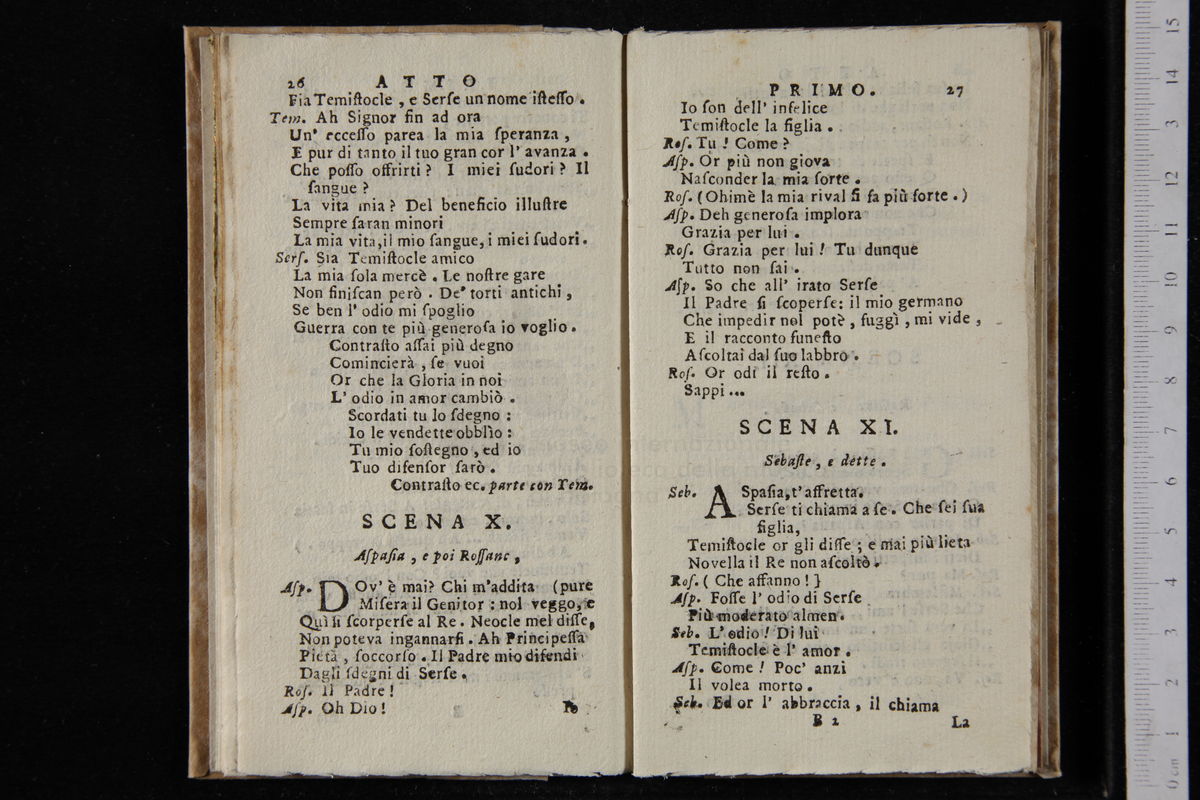 26 ATTO
Fia Temiſtocle, e Serſe un nome iſteſſo.
Tem. Ah Signor fin ad ora
Un' ecceſſo parea la mia ſperanza,
E pur di tanto il tuo gran cor l' avanza.
Che poſſo offrirti? I miei ſudori? Il
ſangue?
La vita mia? Del beneficio illuſtre
Sempre ſaran minori
La mia vita, il mio ſangue, i miei ſudori.
Serſ. Sia Temiſtocle amico
La mia ſola mercè. Le noſtre gare
Non finiſcan però. De' torti antichi,
Se ben l' odio mi ſpoglio
Guerra con te più generoſa io voglio.
Contraſto aſſai più degno
Comincierà, ſe vuoi
Or che la Gloria in noi
L' odio in amor cambiò.
Scordati tu lo ſdegno:
Io le vendette obblìo:
Tu mio ſoſtegno, ed io
Tuo difenſor ſarò.
Contraſto ec. parte con Tem.
SCENA X.
Aſpaſia, e poi Roſſane,
Aſp. DOv' è mai? Chi m'addita (pure
Miſera il Genitor: nol veggo, e
Quì ſi ſcorperſe al Re. Neocle mel diſſe,
Non poteva ingannarſi. Ah Principeſſa
Pietà, ſoccorſo. Il Padre mio difendi
Dagli ſdegni di Serſe.
Roſ. Il Padre!
Aſp. Oh Dio!
Io
PRIMO. 27
Io ſon dell' infelice
Temiſtocle la figlia.
Roſ. Tu! Come?
Aſp. Or più non giova
Naſconder la mia ſorte.
Roſ. (Ohimè la mia rival ſi fa più forte.)
Aſp. Deh generoſa implora
Grazia per lui.
Roſ. Grazia per lui! Tu dunque
Tutto non ſai.
Aſp. So che all' irato Serſe
Il Padre ſi ſcoperſe: il mio germano
Che impedir nol potè, fuggì, mi vide,
E il racconto funeſto
Aſcoltai dal ſuo labbro.
Roſ. Or odi il reſto.
Sappi...
SCENA XI.
Sebaſte, e dette.
Seb. ASpaſia, t' affretta.
Serſe ti chiama a ſe. Che ſei ſua
figlia,
Temiſtocle or gli diſſe; e mai più lieta
Novella il Re non aſcoltò.
Roſ. (Che affanno!}
Aſp. Foſſe l' odio di Serſe
Più moderato almen.
Seb. L' odio! Di lui
Temiſtocle è l' amor.
Aſp. Come! Poc' anzi
Il volea morto.
Seb. Ed or l' abbraccia, il chiama
B 2 La